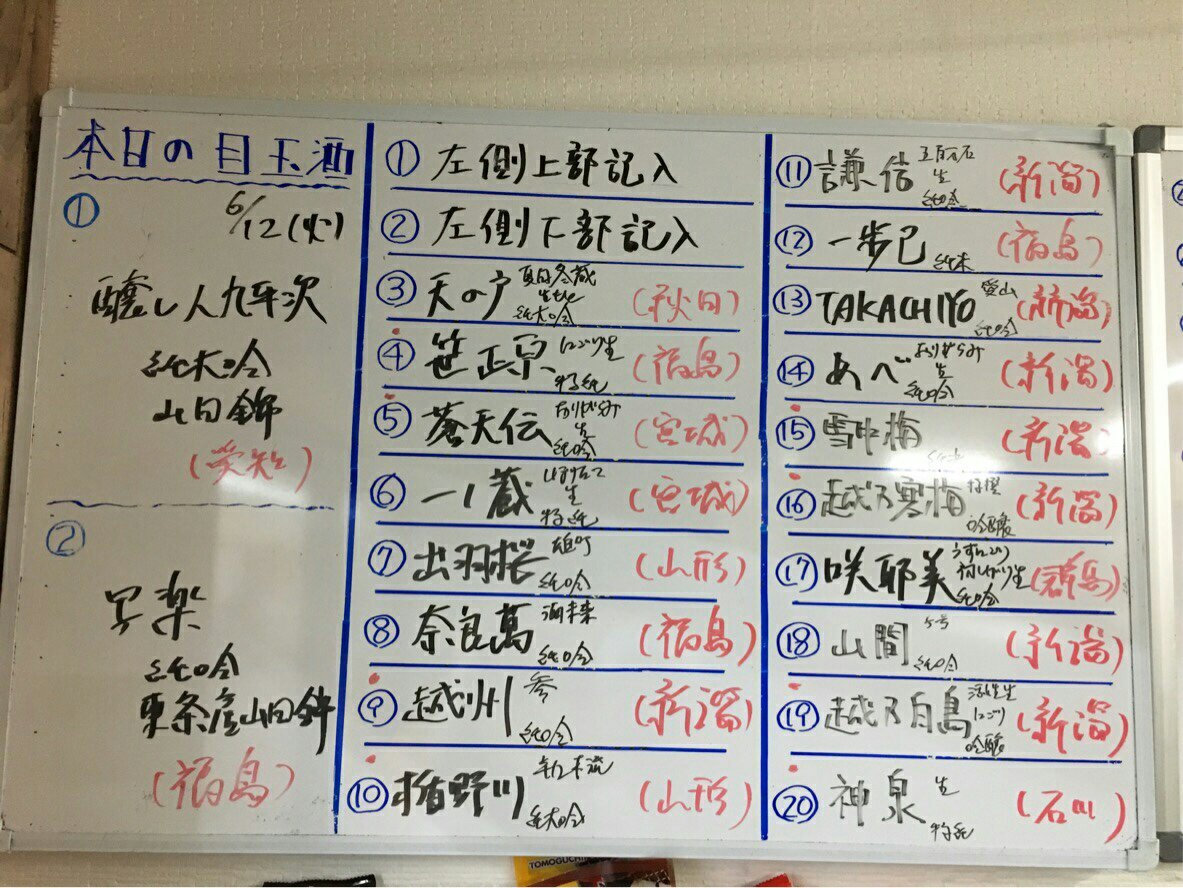 本日の目玉酒
① 6/12(火)
醸し人九平次
純大吟
山田錦
(愛知)
②
写楽
純吟
東条産山田錦
(福島)
① 左側上部記入
② 左側下部記入
③ 天の戸 夏田冬蔵 純大吟 (秋田)
④ 笹正宗 にごり生 特純 (福島)
⑤ 蒼天伝 おりがらみ 生 純吟 (宮城)
⑥ 一ノ蔵 生 特純 (宮城)
⑦ 出羽桜 雄町 純吟 (山形)
⑧ 奈良萬 酒未来 純吟 (福島)
⑨ 越州 参 純吟 (新潟)
⑩ 楯野川 純大吟 (山形)
⑪ 謙信 五百万石 生 純吟 (新潟)
⑫ 一歩己 純米 (福島)
⑬ TAKACHIYO 愛山 純吟 (新潟)
⑭ あべ おりがらみ 生 純吟 (新潟)
⑮ 雪中梅 (新潟)
⑯ 越乃寒梅 特撰 吟醸 (新潟)
⑰ 咲耶美 うすにごり 生 純吟 (群馬)
⑱ 山間 純吟 (新潟)
⑲ 越乃白鳥 活性生 にごり 吟醸 (新潟)
⑳ 神泉 生 特純 (石川)
TOMOGUCHI